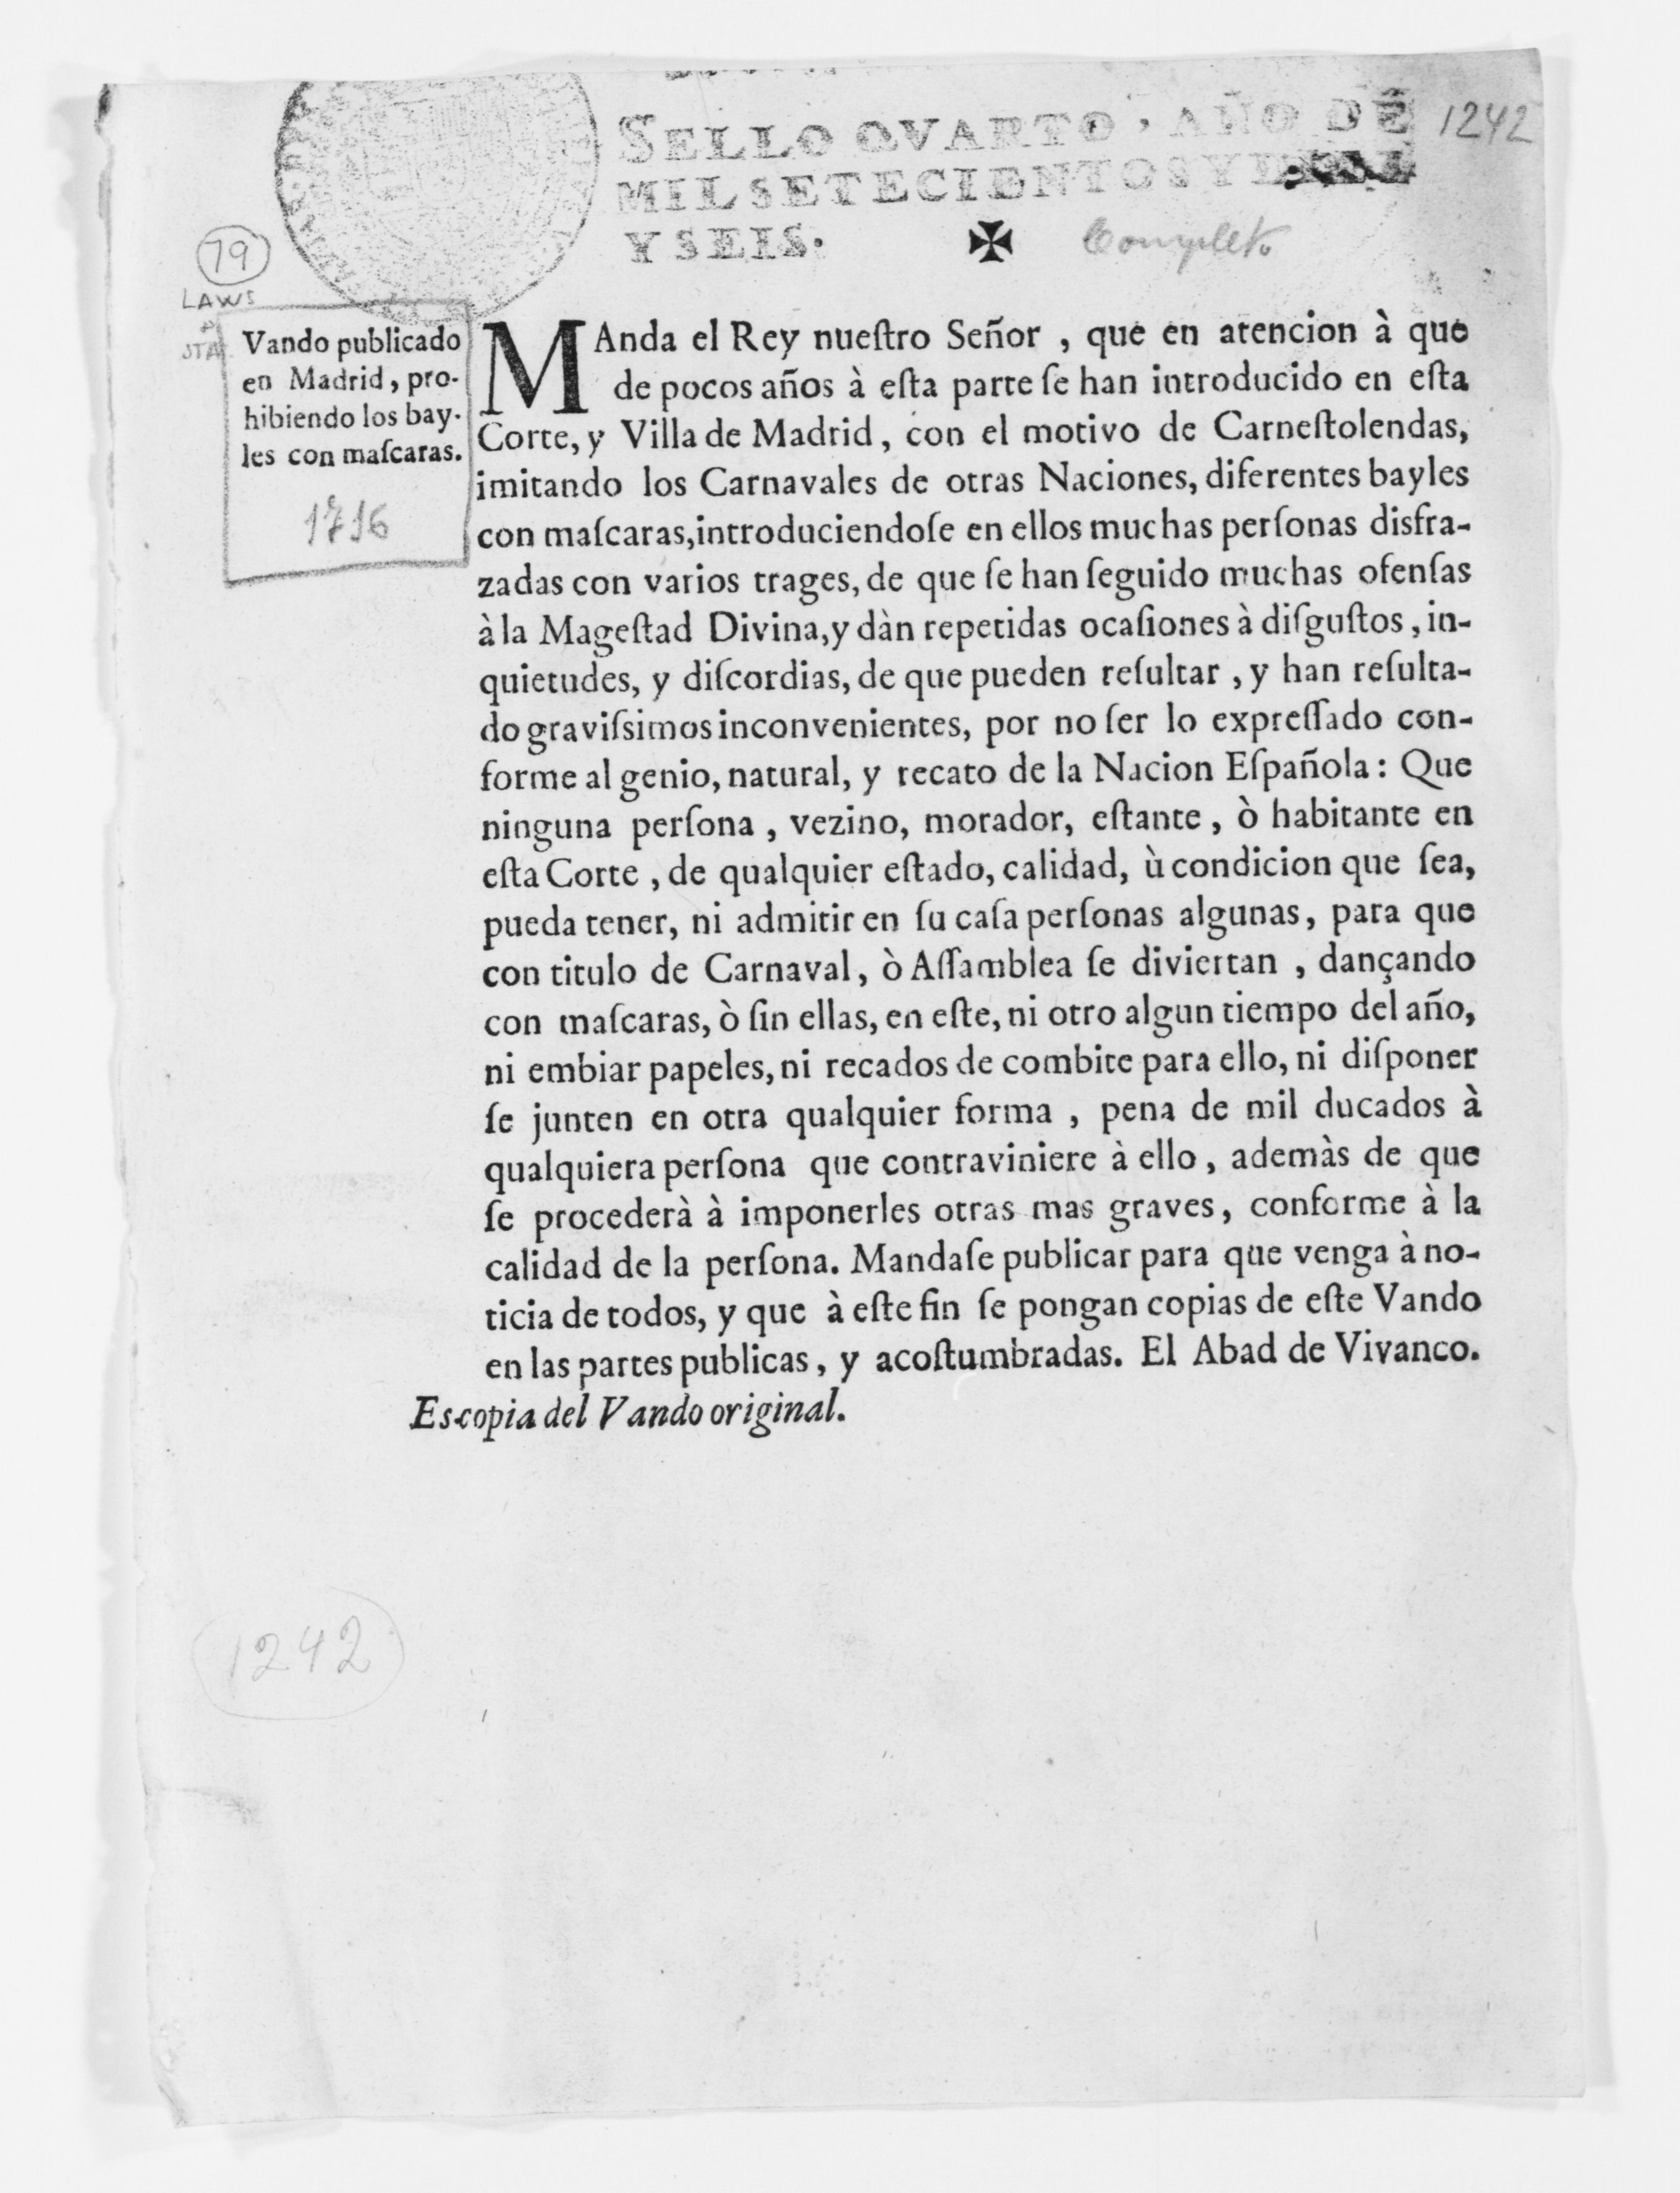 SELLO QVARTO, AÑO DE
MIL SETECIENTOS Y
Y SEIS.
1242
✠
Completo
79
LAWS
STA
Vando publicado
en Madrid, pro-
hibiendo los bay-
les con maſcaras.
1716
MAnda el Rey nueſtro Señor, que en atencion à que
de pocos años à eſta parte ſe han introducido en eſta
Corte, y Villa de Madrid, con el motivo de Carneſtolendas,
imitando los Carnavales de otras Naciones, diferentes bayles
con maſcaras, introduciendoſe en ellos muchas perſonas disfra-
zadas con varios trages, de que ſe han ſeguido muchas ofenſas
à la Mageſtad Divina, y dàn repetidas ocaſiones à diſguſtos, in-
quietudes, y diſcordias, de que pueden reſultar, y han reſulta-
do graviſsimos inconvenientes, por no ſer lo expreſſado con-
forme al genio, natural, y recato de la Nacion Eſpañola: Que
ninguna perſona, vezino, morador, eſtante, ò habitante en
eſta Corte, de qualquier eſtado, calidad, ù condicion que ſea,
pueda tener, ni admitir en ſu caſa perſonas algunas, para que
con titulo de Carnaval, ò Aſſamblea ſe diviertan, dançando
con maſcaras, ò ſin ellas, en eſte, ni otro algun tiempo del año,
ni embiar papeles, ni recados de combite para ello, ni diſponer
ſe junten en otra qualquier forma, pena de mil ducados à
qualquiera perſona que contraviniere à ello, ademàs de que
ſe procederà à imponerles otras mas graves, conforme à la
calidad de la perſona. Mandaſe publicar para que venga à no-
ticia de todos, y que à eſte fin ſe pongan copias de eſte Vando
en las partes publicas, y acoſtumbradas. El Abad de Vivanco.
Es copia del Vando original.
1242